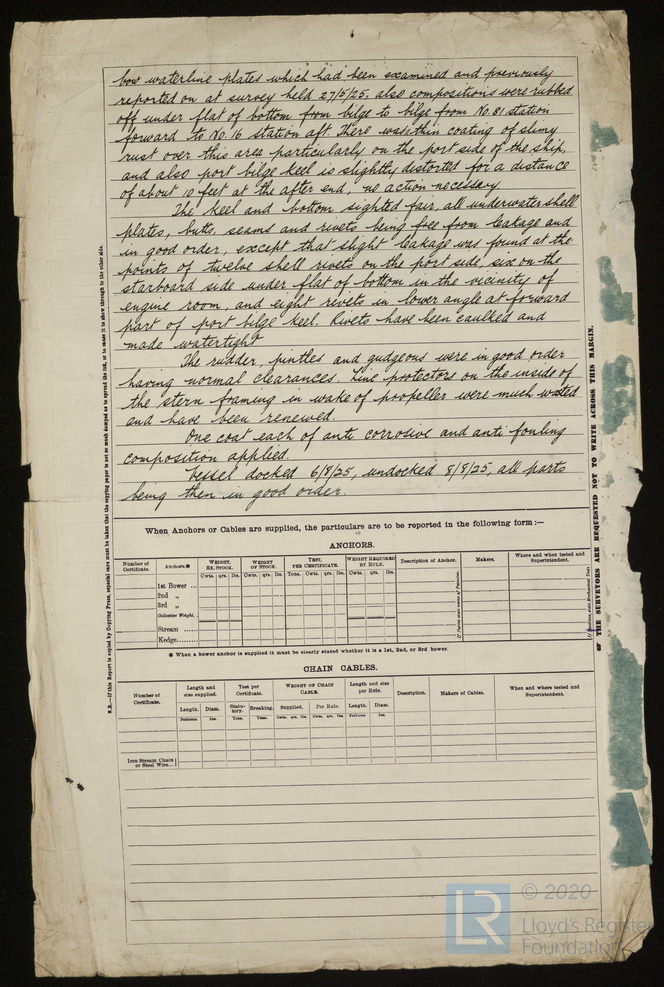 bow waterline plates which had been examined and previously
reported on at survey held 27/5/25, also compositions were rubbed
off under flat of bottom from bilge to bilge from No. 81 station
forward to No. 16 station aft. There was thin coating of slimy
rust over this area particularly on the port side of the ship,
and also port bilge keel is slightly distorted for a distance
of about 10 feet at the after end, no action necessary.
The keel and bottom sighted fair, all underwater shell
plates, butts, seams and rivets being free from leakage and
in good order, except that slight leakage was found at the
points of twelve shell rivets on the port side, six on the
starboard side under flat of bottom in the vicinity of
engine room, and eight rivets in lower angle at forward
part of port bilge keel. Rivets have been caulked and
made watertight
The rudder, pintles and gudgeons were in good order
having normal clearances. Zinc protectors on the inside of
the stern framing in wake of propeller were much wasted
and have been renewed.
One coat each of anti corrosive and anti fouling
composition applied.
Vessel docked 6/8/25, undocked 8/8/25, all parts
being then in good order.
N.B.—If this Report is copied by Copying Press, especial care must be taken that the copying paper is not so much damped as to spread the ink, or to cause it to show through to the other side.
THE SURVEYORS ARE REQUESTED NOT TO WRITE ACROSS THIS MARGIN.
When Anchors or Cables are supplied, the particulars are to be reported in the following form :—
ANCHORS.
Number of Certificate. Anchors.* WEIGHT, EX. STOCK. WEIGHT OF STOCK. TEST, PER CERTIFICATE. WEIGHT REQUIRED BY RULE. Description of Anchor. Makers. Where and when tested and Superintendent.
Cwts. qrs. lbs. Cwts. qrs. lbs. Tons. Cwts. qrs. lbs. Cwts. qrs. lbs.
1st Bower ...
2nd „
3rd „
Collective Weight.
Stream ......
Kedge.......
* When a bower anchor is supplied it must be clearly stated whether it is a 1st, 2nd, or 3rd bower.
CHAIN CABLES.
Number of Certificate. Length and size supplied. Test per Certificate. WEIGHT OF CHAIN CABLE. Length and size per Rule. Description. Makers of Cables. When and where tested and Superintendent.
Length. Diam. Statutory. Breaking. Supplied. Per Rule. Length. Diam.
Fathoms. Ins. Tons. Tons. Cwts. qrs. lbs. Cwts. qrs. lbs. Fathoms. Ins.
Iron Stream Chain
or Steel Wire...
LR
© 2020
Lloyd's Register
Foundation